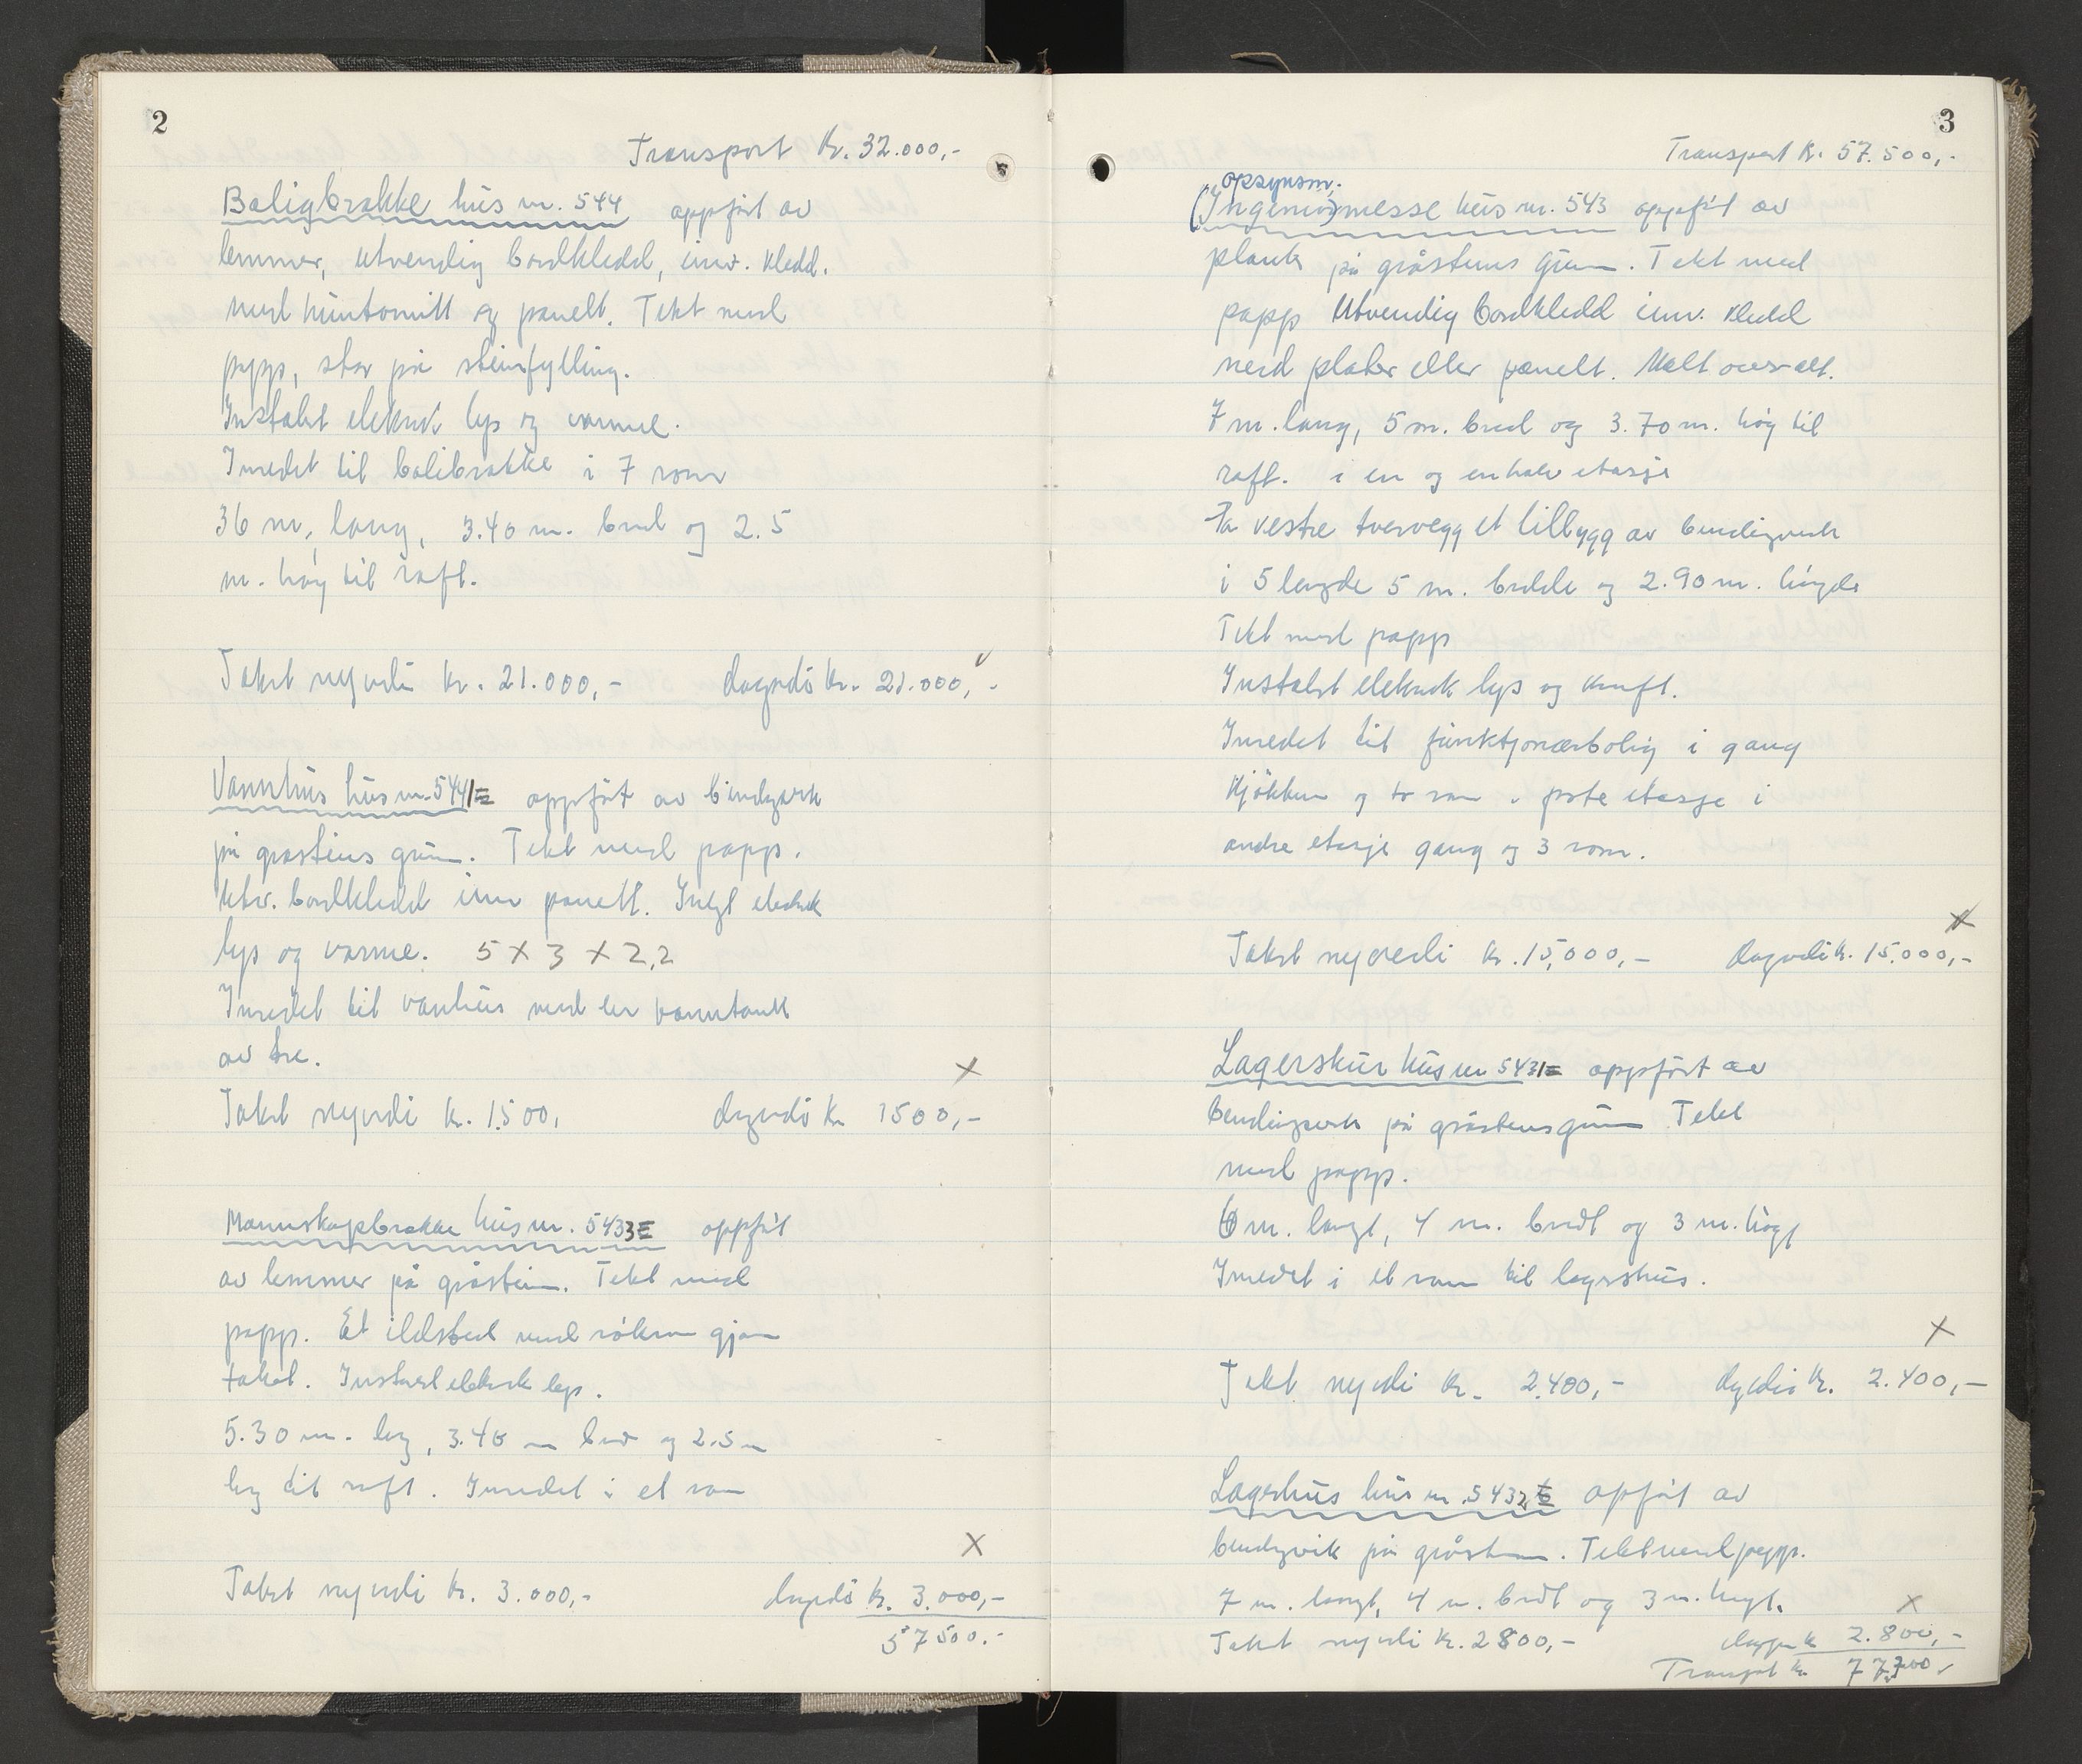 2
Transport Kr. 32.000,-
Boligbrakke hus nr. 544 oppført av
lemmer, utvendig bordkledd, innv. kledd.
med huntonitt og panelt. Tekt med
papp, står på steinfylling.
Instalert elektrisk lys og varme.
Inredet til bolibrakke i 7 rom
36 m, lang, 3.40 m. bred og 2.5
m. høy til raft.
Takst nyverdi kr. 21.000,- dagverdi kr. 21.000,-
Vannhus hus nr. 544 oppført av bindigverk
på gråsteins grunn. Tekt med papp.
Utv. bordkledd inv panelt. Inlagt elektrisk
lys og varme. 5 x 3 x 2,2
Inredet til vanhus med en vanntank
av tre.
Takst nyverdi kr. 1.500, dagverdi kr 1500,-
x
Mannskapsbrakke hus nr. 5433 oppført
av lemmer på gråstein. Tekt med
papp. Et ildsted med rökrør gjennom
taket. Instalert elektrisk lys.
5.30 m. lang, 3.40 m bred og 2.5 m
høg til raft. Inredet i et rom
x
Takst nyverdi kr. 3.000,- dagverdi kr. 3.000,-
57500.-
3
Transport kr. 57.500,-
opsynsm.
(Ingeniør)messe hus nr. 543 oppført av
plank på gråsteins grunn. Tekt med
papp Utvendig bordkledd innv. kledd
med plater eller panelt. Malt over alt.
7 m. lang, 5 m. bred og 3.70 m. høy til
raft. i en og en halv etasje
På vestre tvervegg et tilbygg av bindigverk
i 5 lengde 5 m. bredde og 2.90 m. høyde
Tekt med papp
Instalert elektrisk lys og kraft.
Inredet til funktjonærbolig i gang
kjökken og to rom i første etasje i
andre etasje gang og 3 rom.
x
Takst nyverdi kr. 15,000,- dagverdi kr. 15.000,-
Lagerskur hus nr 5431 oppført av
bindigverk på gråsteinsgrunn Tekt
med papp.
6 m. langt, 4 m. bredt og 3 m. høgt
Inredet i et rom til lagerhus.
x
Takst nyverdi kr. 2.400,- dagverdi kr. 2.400,-
Lagerhus hus nr. 5432 opført av
bindigverk på gråstein. Tekt med papp.
7 m. langt, 4 m. bredt og 3 m. høgt.
x
Takst nyverdi kr. 2800,- dagverdi kr 2.800,-
Transport kr. 77.700,-